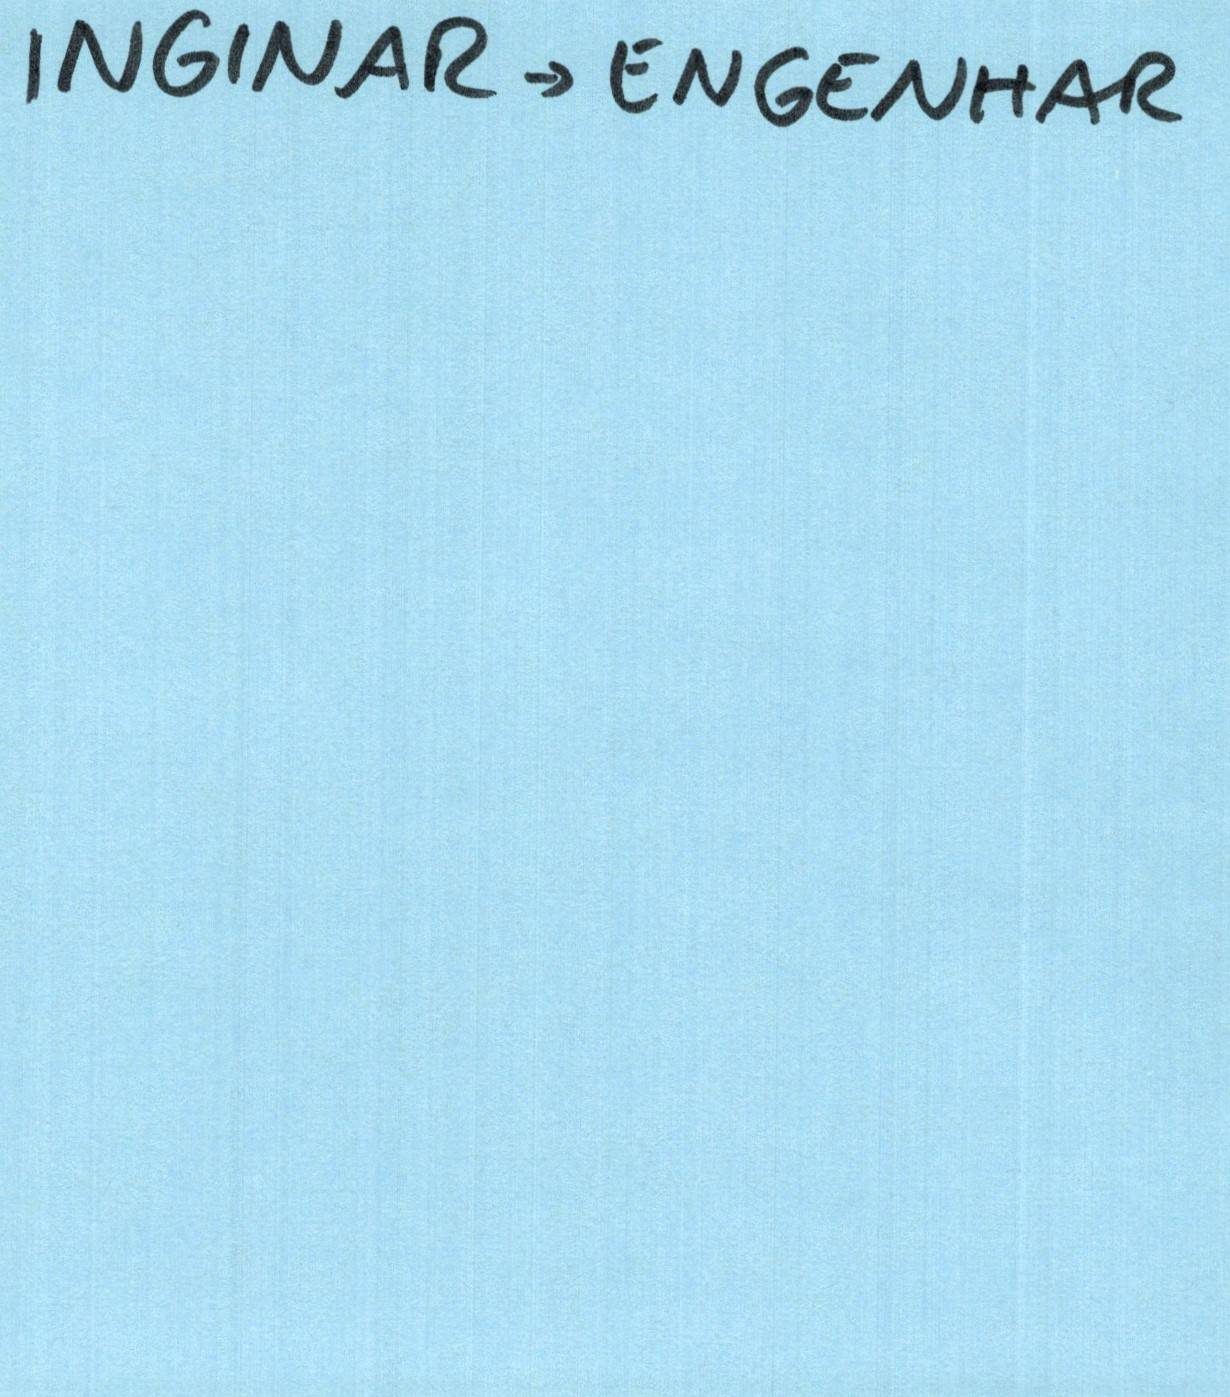 INGINAR → ENGENHAR